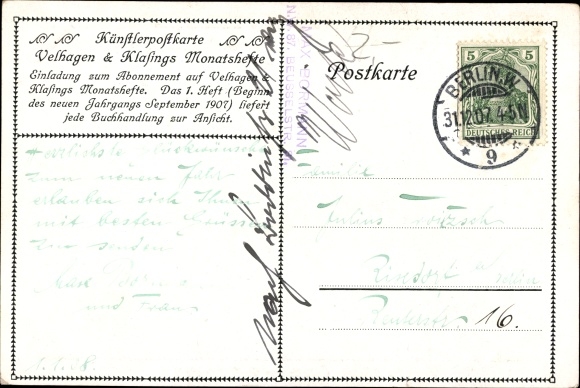 Künstlerpostkarte
Velhagen & Klasings Monatshefte
Einladung zum Abonnement auf Velhagen &
Klasings Monatshefte. Das 1. Heft (Beginn
des neuen Jahrgangs September 1907) liefert
jede Buchhandlung zur Ansicht.
Postkarte
5 5
DEUTSCHES REICH
BERLIN.W.
31.12.07. 4-5N
* 9
Herzlichste Glückwünsche
zum neuen Jahr
erlauben sich Ihnen
mit besten Grüssen
zu senden
Max
und Frau
Familie
Julius
Rixdorf b/Berlin
Reuterstr. 16.
1.1.08.